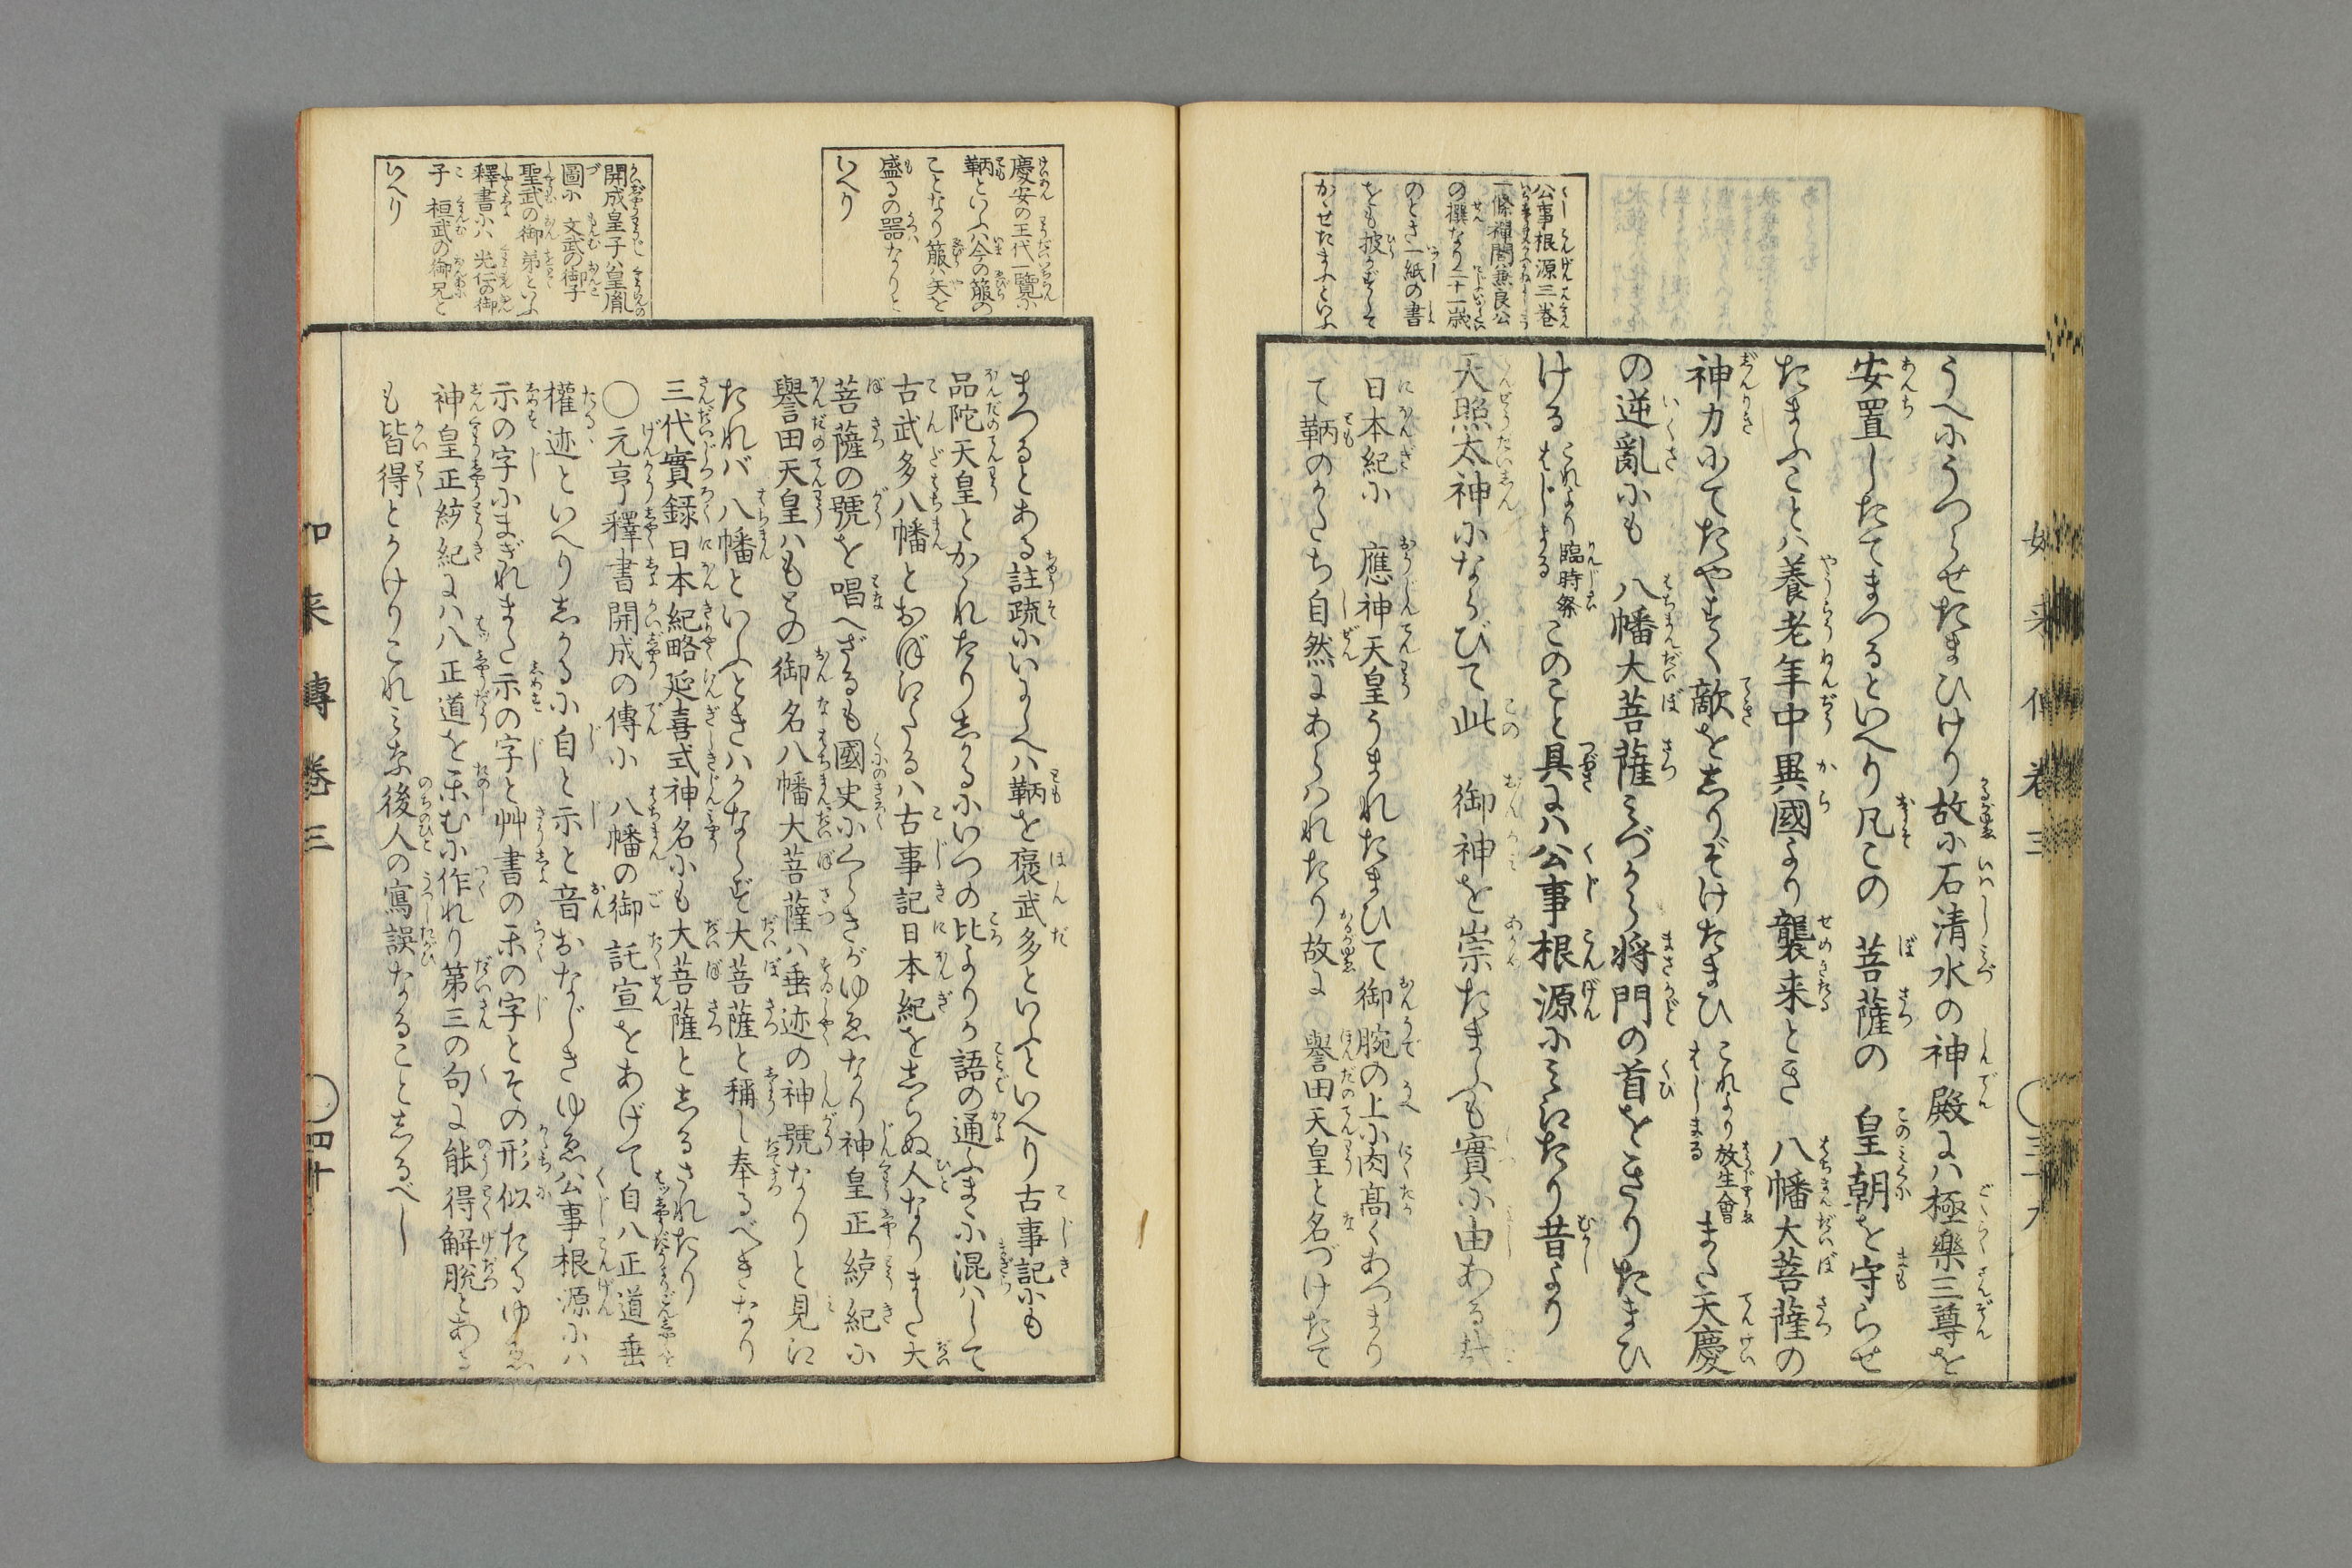 公事根源三巻
一條禅閤兼良公
の撰なり二十一歳
のとき一紙の書
をも披かずして
かゝせたまふといふ
うへにうつらせたまひけり故に石清水の神殿には極樂三尊を
安置したてまつるといへり凡この菩薩の皇朝を守らせ
たまふことハ養老年中異國より襲来とき八幡大菩薩の
神力にてたやすく敵をしりぞけたまひ これより放生會はじまる また天慶
の逆亂にも八幡大菩薩みづから将門の首をきりたまひ
ける これより臨時祭はじまる このこと具にハ公事根源にみえたり昔より
天照太神にならびて此御神を崇たまふも實に由ある哉
日本紀に應神天皇うまれたまひて御腕の上に肉高くあつまり
て鞆のかたち自然にあらハれたり故に誉田天皇と名づけたて
如来傳巻三 ○三十九
慶安の王代一覧に
鞆といふハ今の箙の
ことなり箙ハ矢を
盛るの器なりと
いへり
開成皇子ハ皇胤
圖に文武の御子
聖武の御弟といふ
釋書にハ光仁の御
子桓武の御兄と
いへり
まつるとある註疏にいにしへハ鞆を褒武多といふといへり古事記にも
品陀天皇とかゝれたりしかるにいつの比よりか語の通ふまゝに混ハして
古武多八幡とおぼえたるハ古事記日本紀をしらぬ人なりまた大
菩薩の號を唱へざるも國史にくらきがゆゑなり神皇正統紀に
誉田天皇ハもとの御名八幡大菩薩ハ垂迹の神號なりと見え
たれバ八幡といふときハかならず大菩薩と稱し奉るべきなり
三代實録日本紀略延喜式神名にも大菩薩としるされたり
○元亨釋書開成の傳に八幡の御託宣をあげて自八正道垂
權迹といへりしかるに自と示と音おなじきゆゑ公事根源にハ
示の字にまぎれまた示の字と艸書の樂の字とその形似たるゆゑ
神皇正統紀にハ八正道を樂むに作れり第三の句に能得解脱とある
も皆得とかけりこれみな後人の寫誤なることしるべし
如来傳巻三 ○四十